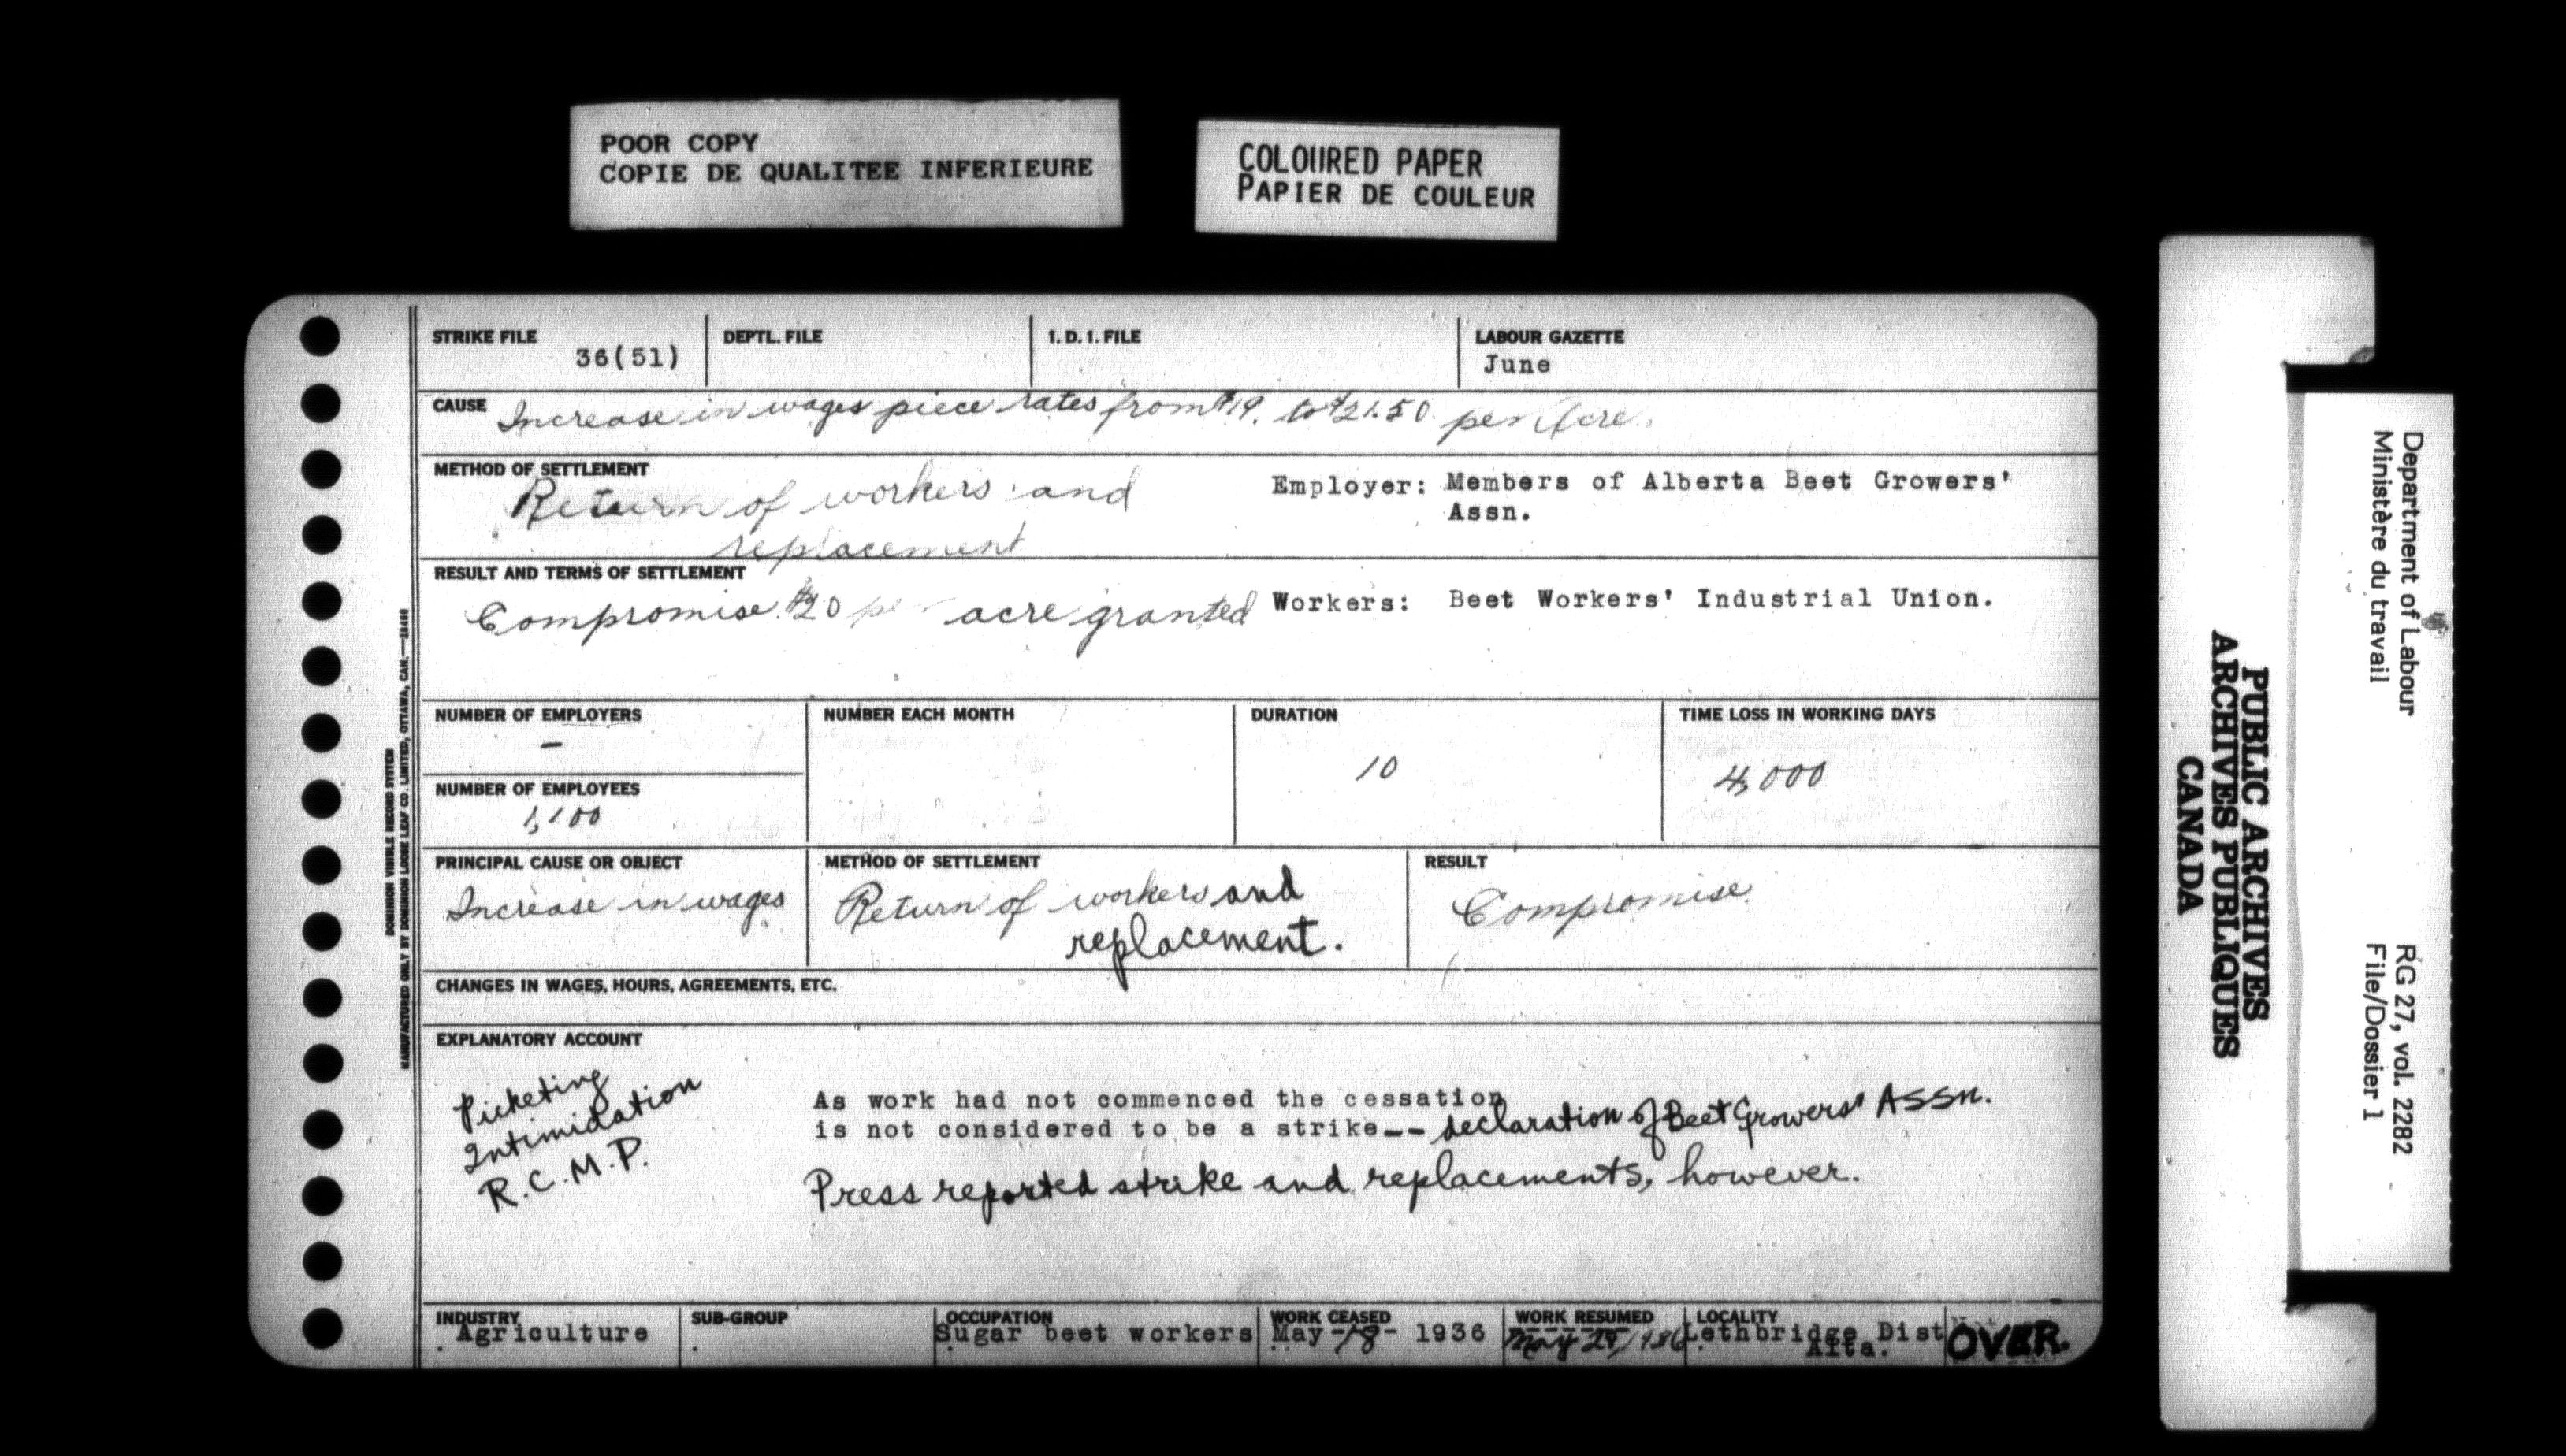 POOR COPY
COPIE DE QUALITEE INFERIEURE
COLOURED PAPER
PAPIER DE COULEUR
STRIKE FILE 36(51)
DEPTL. FILE
I. D. I. FILE
LABOUR GAZETTE
June
CAUSE Increase in wages piece rates from $19. to $21.50 per Acre.
METHOD OF SETTLEMENT
Return of workers and
replacement
Employer: Members of Alberta Beet Growers'
Assn.
RESULT AND TERMS OF SETTLEMENT
Compromise. $20 per acre granted
Workers: Beet Workers' Industrial Union.
NUMBER OF EMPLOYERS
–
NUMBER OF EMPLOYEES
1,100
NUMBER EACH MONTH
DURATION
10
TIME LOSS IN WORKING DAYS
4,000
PRINCIPAL CAUSE OR OBJECT
Increase in wages
METHOD OF SETTLEMENT
Return of workers and
replacement.
RESULT
Compromise.
CHANGES IN WAGES, HOURS, AGREEMENTS, ETC.
EXPLANATORY ACCOUNT
Picketing
Intimidation
R.C.M.P.
As work had not commenced the cessation
is not considered to be a strike-- declaration of Beet Growers' Assn.
Press reported strike and replacements, however.
INDUSTRY
Agriculture
SUB-GROUP
OCCUPATION
Sugar beet workers
WORK CEASED
May -18- 1936
WORK RESUMED
May 29, 1936
LOCALITY
Lethbridge Dist
Alta.
OVER.
DOMINION VISIBLE RECORD SYSTEM
MANUFACTURED ONLY BY DOMINION LOOSE LEAF CO. LIMITED, OTTAWA, CAN.
PUBLIC ARCHIVES
ARCHIVES PUBLIQUES
CANADA
Department of Labour
Ministère du travail
RG 27, vol. 2282
File/Dossier 1